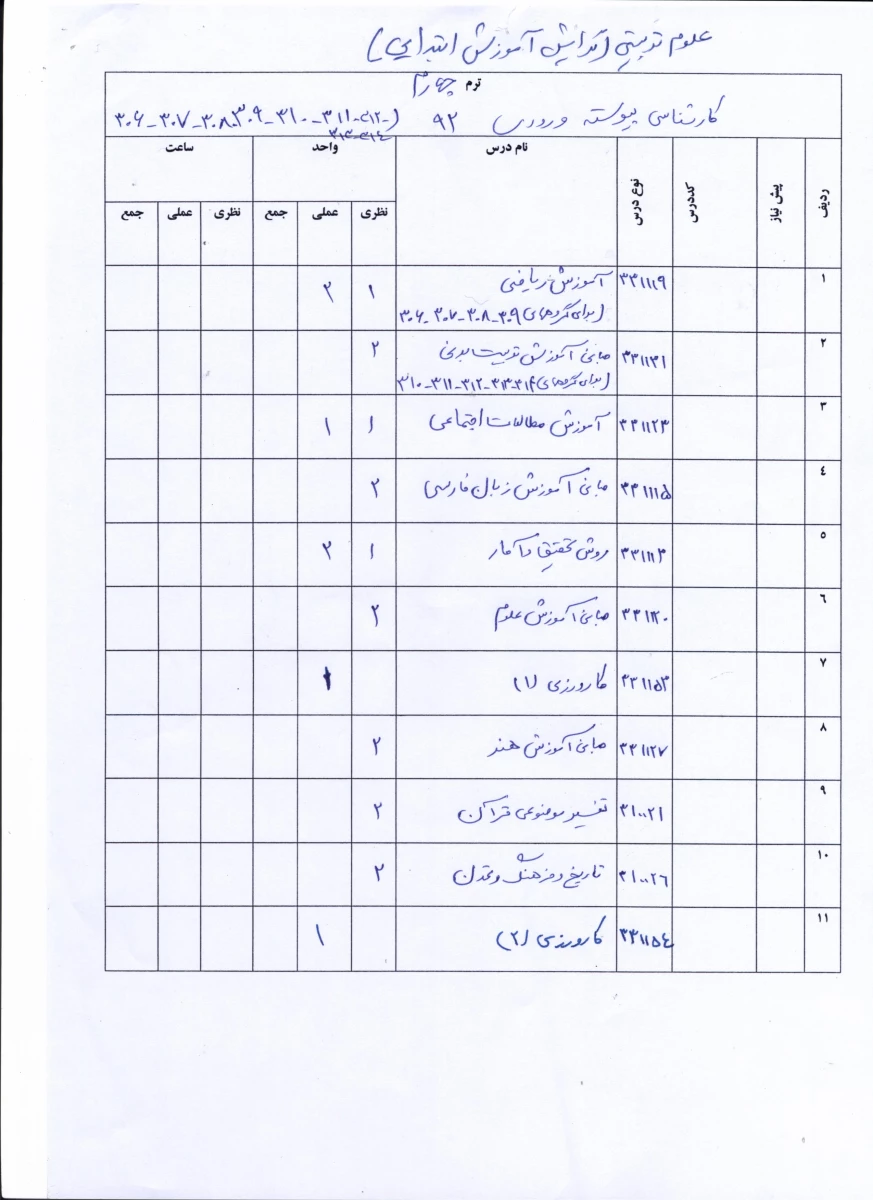 علوم تربیتی (گرایش آموزش ابتدایی)
ترم چهارم
کارشناسی پیوسته ورودی ۹۲ (۳۰۶-۳۰۷-۳۰۸-۳۰۹-۳۱۰-۳۱۱-۳۱۲-
۳۱۳-۳۱۴
ردیف پیش نیاز کددرس نوع درس نام درس واحد ساعت
نظری عملی جمع نظری عملی جمع
۱ ۳۳۱۱۱۹ آموزش ریاضی ۱ ۲
(برای گروههای ۳۰۹-۳۰۸-۳۰۷-۳۰۶
۲ ۳۳۱۱۳۱ مبانی آموزش تربیت بدنی ۲
(برای گروههای ۳۱۴-۳۱۳-۳۱۲-۳۱۱-۳۱۰
۳ ۳۳۱۱۲۳ آموزش مطالعات اجتماعی ۱ ۱
۴ ۳۳۱۱۱۵ مبانی آموزش زبان فارسی ۲
۵ روش تحقیق و آمار ۱ ۲
۶ ۳۳۱۱۲۰ مبانی آموزش علوم ۲
۷ ۳۳۱۱۵۳ کارورزی (۱) ۱
۸ ۳۳۱۱۲۷ مبانی آموزش هنر ۲
۹ ۳۱۰۰۲۱ تفسیر موضوعی قرآن ۲
۱۰ ۳۱۰۰۲۶ تاریخ و فرهنگ و تمدن ۲
۱۱ ۳۳۱۱۵۴ کارورزی (۲) ۱